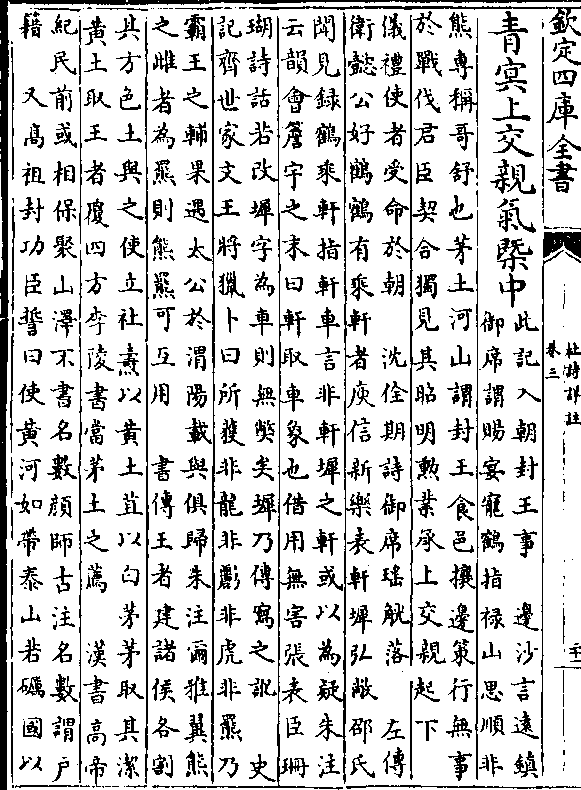 欽定四庫全書
杜詩詳註
卷三
青㝠上交親氣槩中
此記入朝封王事 邊沙言遠鎮
御席謂賜宴寵鶴指禄山思順非
熊專稱哥舒也茅土河山謂封王食邑攘邊策行無事
於戰伐君臣契合獨見其眙明勲業承上交親起下
儀禮使者受命於朝 沈佺期詩御席瑤觥落 左傳
衛懿公好鶴鶴有乘軒者庾信新樂表軒墀弘敞邵氏
聞見録鶴乘軒指軒車言非軒墀之軒或以為疑朱注
云韻會簷宇之末曰軒取車象也借用無害張表臣珊
瑚詩話若改墀字為車則無獘矣墀乃傳寫之訛 史
記齊世家文王將獵卜曰所獲非龍非彲非虎非羆乃
霸王之輔果遇太公於渭陽載與俱歸朱注爾雅翼熊
之雌者為羆則熊羆可互用 書傳王者建諸侯各割
其方色土與之使立社燾以黄土苴以白茅茅取其潔
黄土取王者覆四方李陵書當茅土之薦 漢書高帝
紀民前或相保聚山澤不書名數顔師古注名數謂户
籍 又髙祖封功臣誓曰使黄河如帶泰山若礪國以